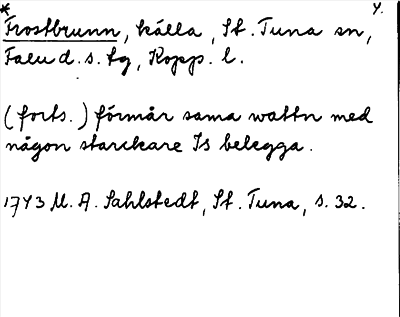 * Y.
Frostbrunn, källa, St. Tuna sn,
Falu d. s. tg, Kopp. l.
(forts.) förmår sama wattn med
någon starckare Is belegga.
1743 M. A. Sahlstedt, St. Tuna, s. 32.